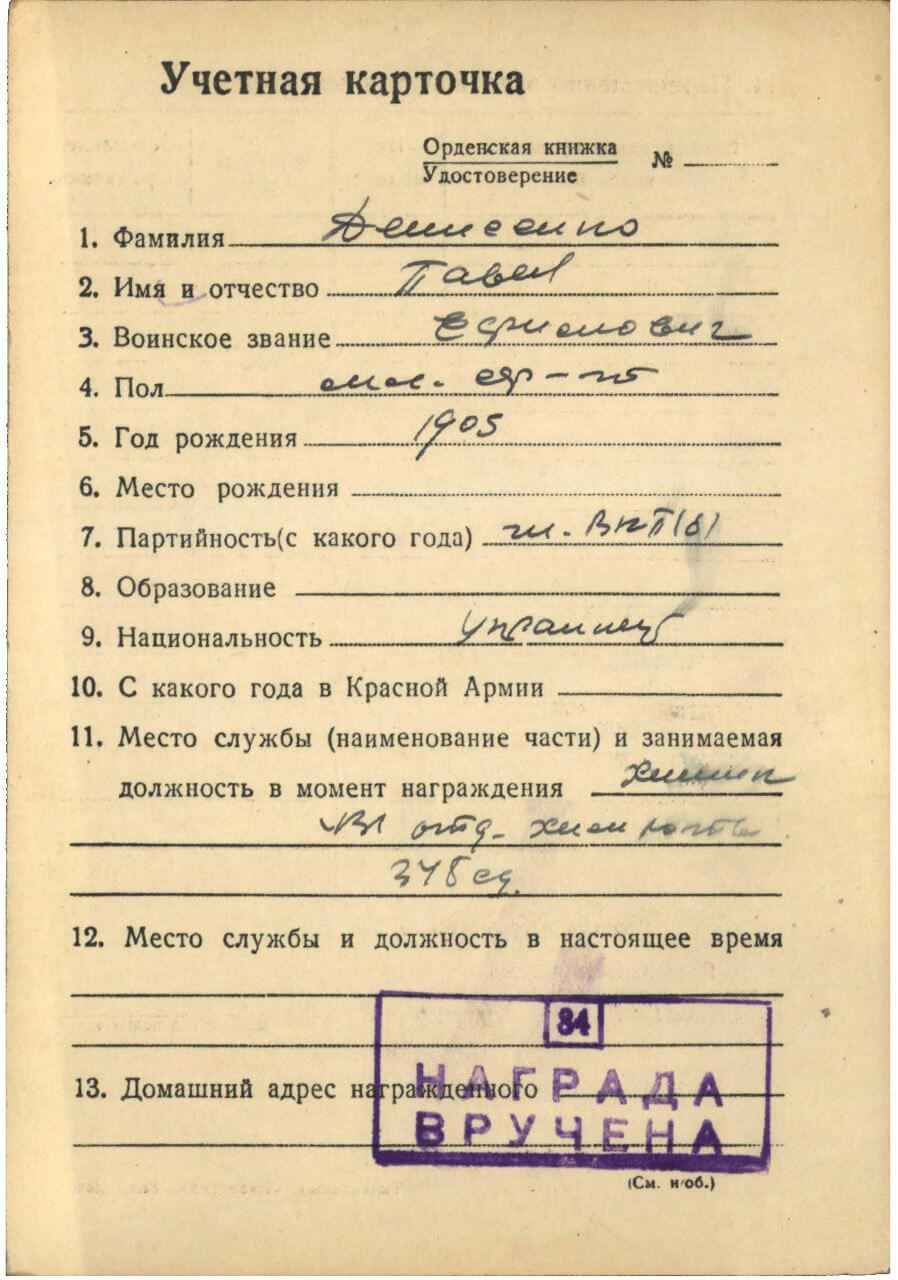 Учетная карточка
Орденская книжка
Удостоверение
№
1. Фамилия Денисенко
2. Имя и отчество Павел
3. Воинское звание
4. Пол мл. с-нт
5. Год рождения 1905
6. Место рождения
7. Партийность(с какого года) чл. ВКП(б)
8. Образование
9. Национальность украинец
10. С какого года в Красной Армии
11. Место службы (наименование части) и занимаемая
должность в момент награждения химик
отд. хим роты
348 сд.
12. Место службы и должность в настоящее время
84
13. Домашний адрес награжденного
НАГРАДА
ВРУЧЕНА
(См. н/об.)